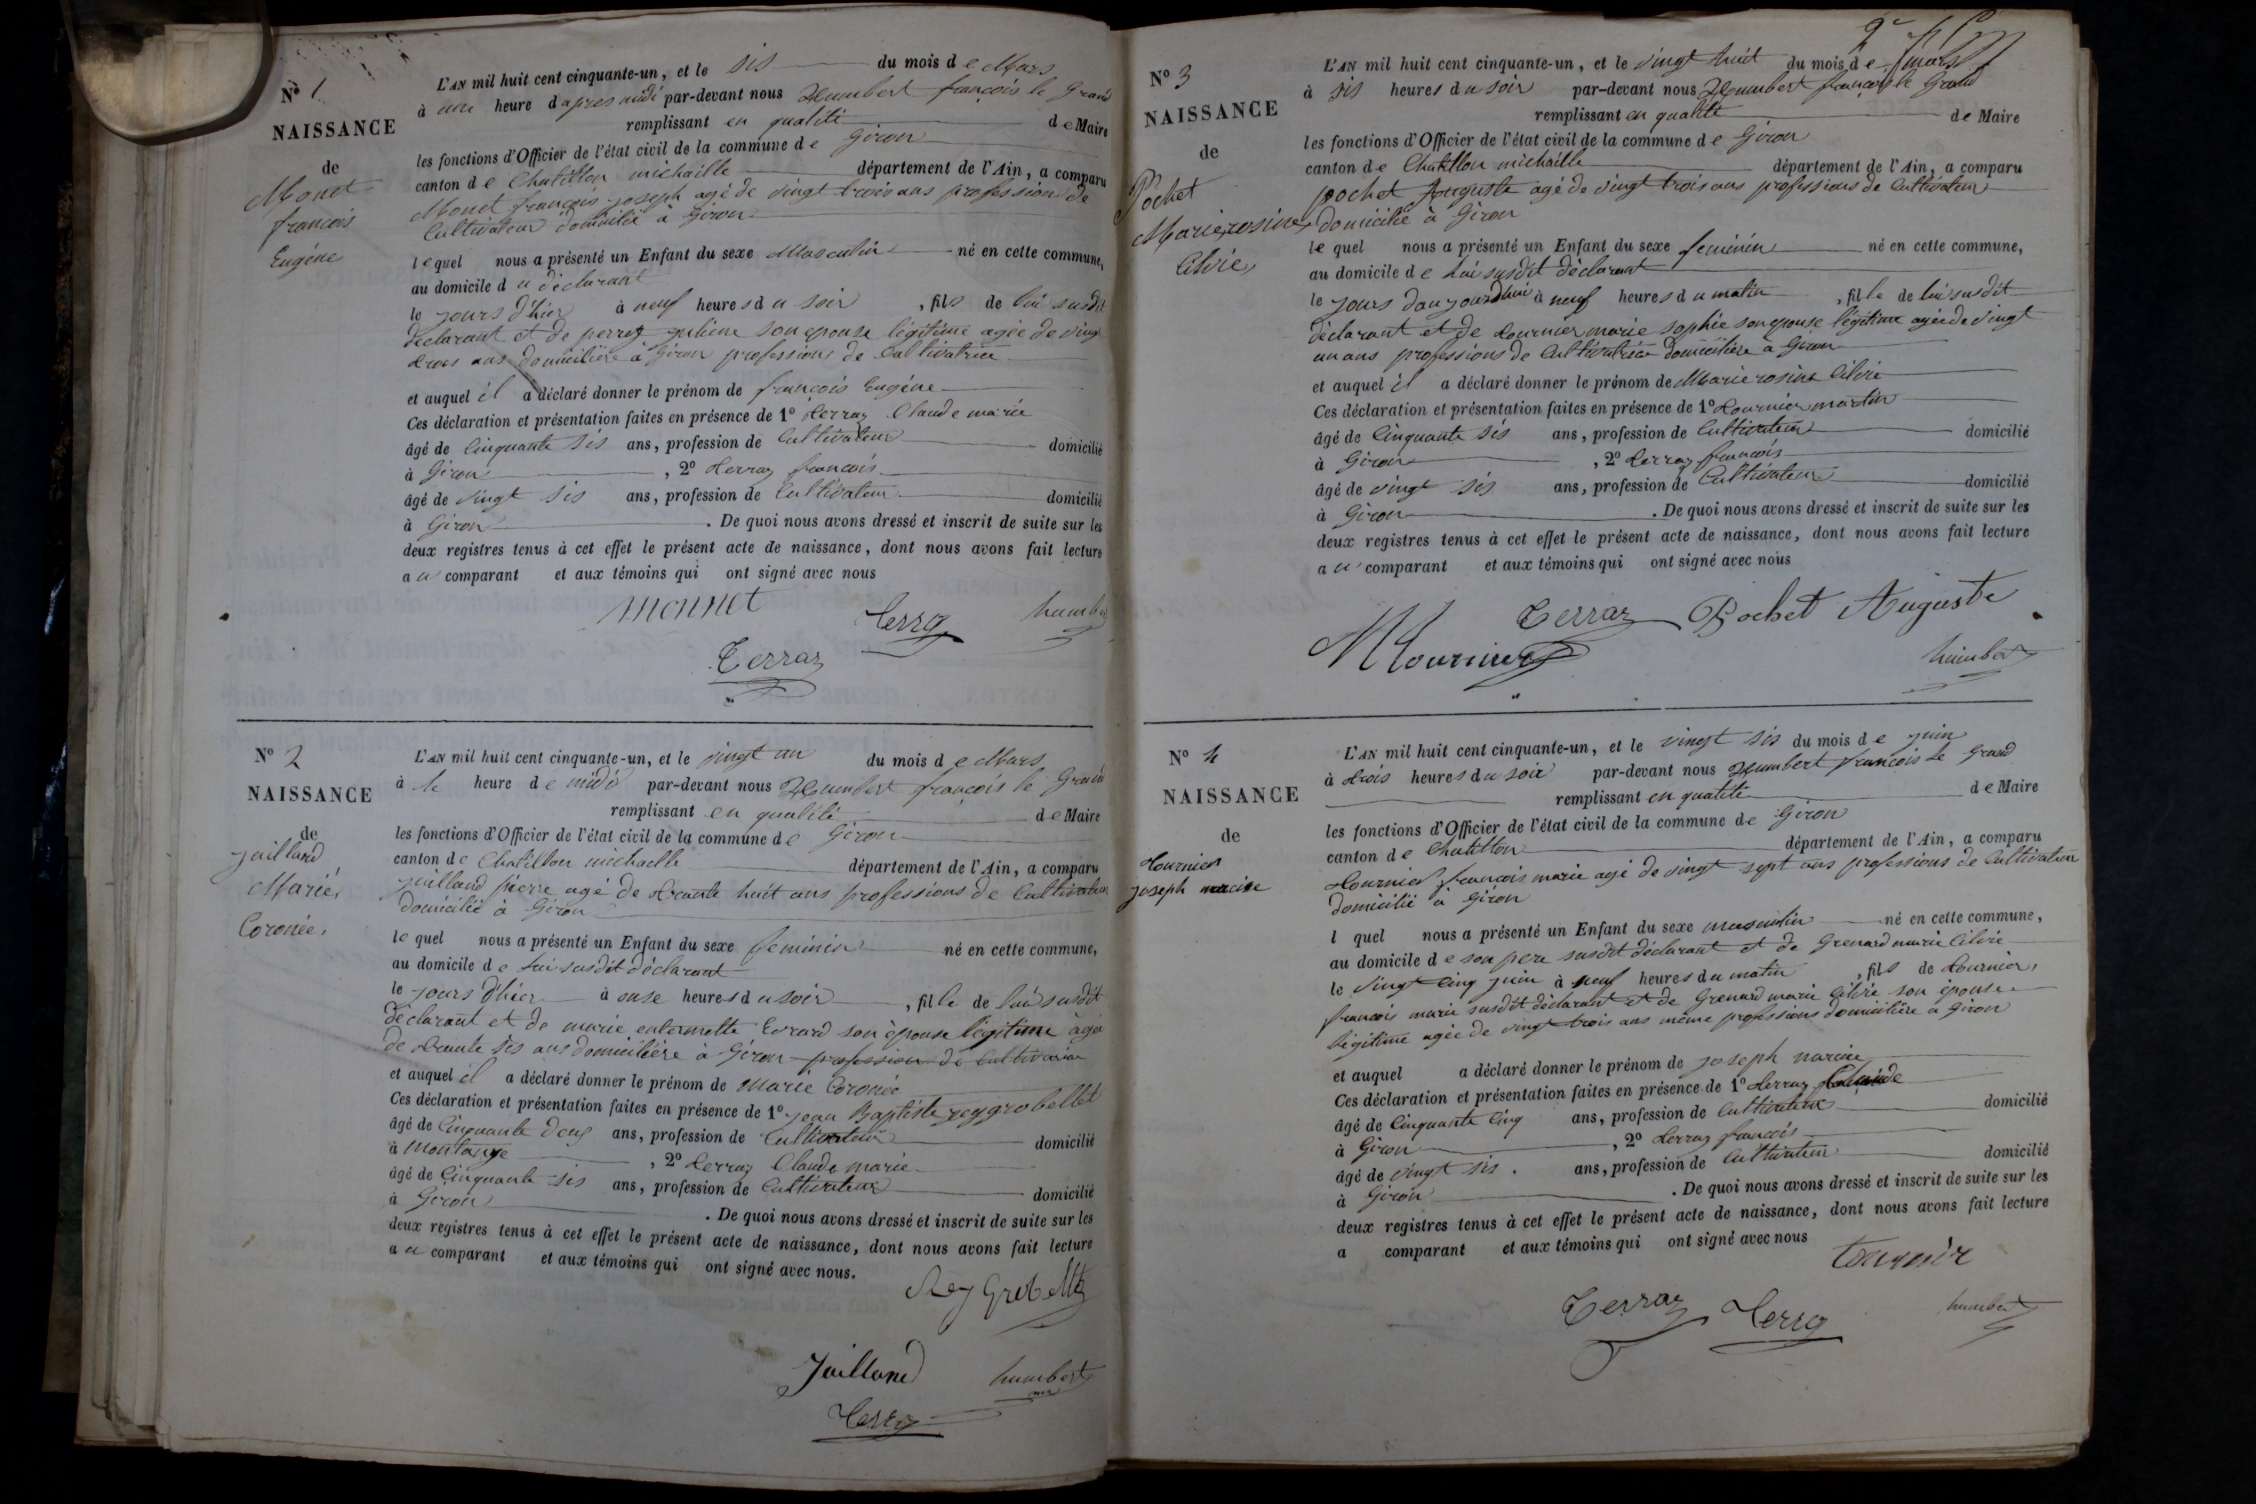 Nº 1
NAISSANCE
de
Monet
françois
Eugéne
L'AN mil huit cent cinquante-un, et le sis du mois de Mars
à une heure d'apres midi par-devant nous Humbert françois le Grand
remplissant en qualité de Maire
les fonctions d'Officier de l'état civil de la commune de Giron
canton de Chatillon michaille département de l'Ain, a comparu
Monet françois joseph agé de vingt trois ans profession de
Cultivateur domicilié à Giron
lequel nous a présenté un Enfant du sexe Masculin né en cette commune,
au domicile du déclarant
le jours d'hier à neuf heures du soir, fils de lui susdit
déclarant et de perroz juliene son epouse légitime agée de vingt
trois ans domicilière à Giron professions de Cultivatrice
et auquel il a déclaré donner le prénom de françois Eugéne
Ces déclaration et présentation faites en présence de 1º terraz Claude marie
âgé de Cinquante sis ans, profession de Cultivateur domicilié
à Giron, 2º terraz françois
âgé de vingt sis ans, profession de Cultivateur domicilié
à Giron. De quoi nous avons dressé et inscrit de suite sur les
deux registres tenus à cet effet le présent acte de naissance, dont nous avons fait lecture
au comparant et aux témoins qui ont signé avec nous
monnet terraz humbert
Terraz
Nº 2
NAISSANCE
de
juilland
Marie,
Coronée,
L'AN mil huit cent cinquante-un, et le vingt un du mois de Mars
à le heure de midi par-devant nous Humbert françois le Grand
remplissant en qualité de Maire
les fonctions d'Officier de l'état civil de la commune de Giron
canton de Chatillon michaille département de l'Ain, a comparu
juilland pierre agé de trente huit ans professions de Cultivateur
domicilié à Giron
lequel nous a présenté un Enfant du sexe feminin né en cette commune,
au domicile de lui susdit déclarant
le jours d'hier à onse heures du soir, fille de lui susdit
déclarant et de marie Evrard son épouse légitime agée
de trente sis ans domicilière à Giron profession de Cultivatrice
et auquel il a déclaré donner le prénom de Marie Coronée
Ces déclaration et présentation faites en présence de 1º jean Baptiste reygrobellet
âgé de Cinquante deux ans, profession de Cultivateur domicilié
à Montange, 2º terraz Claude marie
âgé de Cinquante sis ans, profession de Cultivateur domicilié
à Giron. De quoi nous avons dressé et inscrit de suite sur les
deux registres tenus à cet effet le présent acte de naissance, dont nous avons fait lecture
au comparant et aux témoins qui ont signé avec nous.
Rey Grobellet
Juilland humbert
terraz
2e
Nº 3
NAISSANCE
de
Pochet
Marie rosine
Cilvie
L'AN mil huit cent cinquante-un, et le vingt huit du mois de mars
à sis heures du soir par-devant nous Humbert françois le Grand
remplissant en qualité de Maire
les fonctions d'Officier de l'état civil de la commune de Giron
canton de Chatillon michaille département de l'Ain, a comparu
pochet Auguste agé de vingt trois ans professions de Cultivateur
domicilié à Giron
lequel nous a présenté un Enfant du sexe feminin né en cette commune,
au domicile de lui susdit déclarant
le jours d'aujourd'hui à neuf heures du matin, fille de lui susdit
déclarant et de tournier marie sophie son epouse légitime agée de vingt
un ans professions de Cultivatrice domicilière à Giron
et auquel il a déclaré donner le prénom de Marie rosine Cilvie
Ces déclaration et présentation faites en présence de 1º tournier martin
âgé de Cinquante sis ans, profession de Cultivateur domicilié
à Giron, 2º terraz françois
âgé de vingt sis ans, profession de Cultivateur domicilié
à Giron. De quoi nous avons dressé et inscrit de suite sur les
deux registres tenus à cet effet le présent acte de naissance, dont nous avons fait lecture
au comparant et aux témoins qui ont signé avec nous
Terraz Pochet Auguste
M tournier humbert
Nº 4
NAISSANCE
de
tournier
joseph narcise
L'AN mil huit cent cinquante-un, et le vingt sis du mois de juin
à trois heures du soir par-devant nous Humbert françois le Grand
remplissant en qualité de Maire
les fonctions d'Officier de l'état civil de la commune de Giron
canton de Chatillon département de l'Ain, a comparu
tournier françois marie agé de vingt sept ans professions de Cultivateur
domicilié à Giron
l quel nous a présenté un Enfant du sexe masculin né en cette commune,
au domicile de son pere susdit déclarant et de Grenard marie Cilvie
le vingt cinq juin à neuf heures du matin, fils de tournier,
françois marie susdit déclarant et de Grenard marie Cilvie son épouse
légitime agée de vingt trois ans même professions domicilière à Giron
et auquel a déclaré donner le prénom de joseph narcise
Ces déclaration et présentation faites en présence de 1º terraz Claude
âgé de Cinquante cinq ans, profession de Cultivateur domicilié
à Giron, 2º terraz françois
âgé de vingt sis. ans, profession de Cultivateur domicilié
à Giron. De quoi nous avons dressé et inscrit de suite sur les
deux registres tenus à cet effet le présent acte de naissance, dont nous avons fait lecture
a comparant et aux témoins qui ont signé avec nous
tournier
Terraz terraz humbert